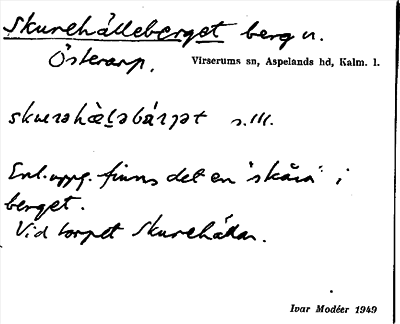 Skurehålleberget berg n.
Österarp. Virserums sn, Aspelands hd, Kalm. l.
s. 111.
Enl. uppg. finns det en "skåra" i
berget.
Vid torpet Skurehållan.
Ivar Modéer 1949